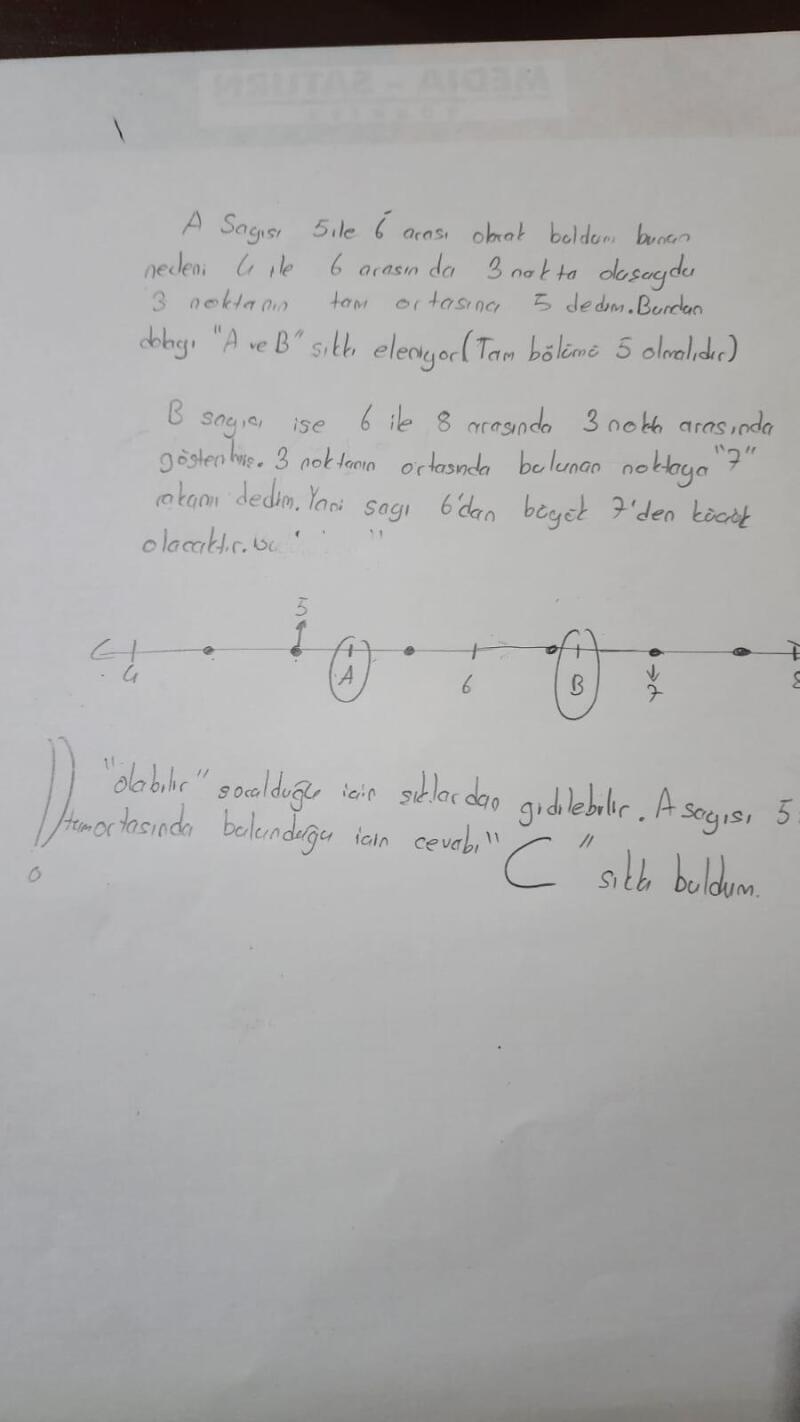 MEDIA - SATURN
A Sagısı 5 ile 6 arası olarak buldum bunun
nedeni 4 ile 6 arasında 3 nokta olusaydu
3 noktanın tam ortasına 5 dedim. Bundan
dolayı "A ve B" sıkkı eleniyor (Tam bölümü 5 olmalıdır)
B sayısı ise 6 ile 8 arasında 3 nokta arasında
gösterilmiş. 3 noktanın ortasında bulunan noktaya "7"
rakamı dedim. Yani sayı 6'dan büyük 7'den küçük
olacaktır.
5
4 A 6 B 7 8
"olabilir" sorulduğu için sıklardan gidilebilir. A sagısı 5
tam ortasında bulunduğu için cevabı "C" sıkkı buldum.